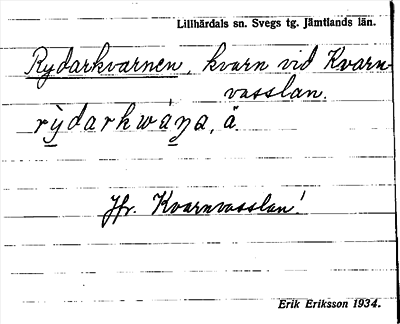 Lillhärdals sn. Svegs tg. Jämtlands län.
Rydarkvarnen, kvarn vid Kvarn-
vasslan.
rỳdarkwáṇa, ä.
Jfr. Kvarnvasslan!
Erik Eriksson 1934.